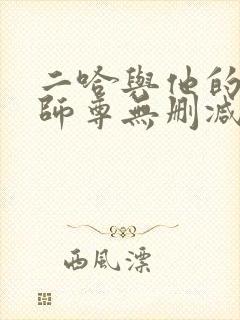 二哈與他的
師尊無刪減
西風漂